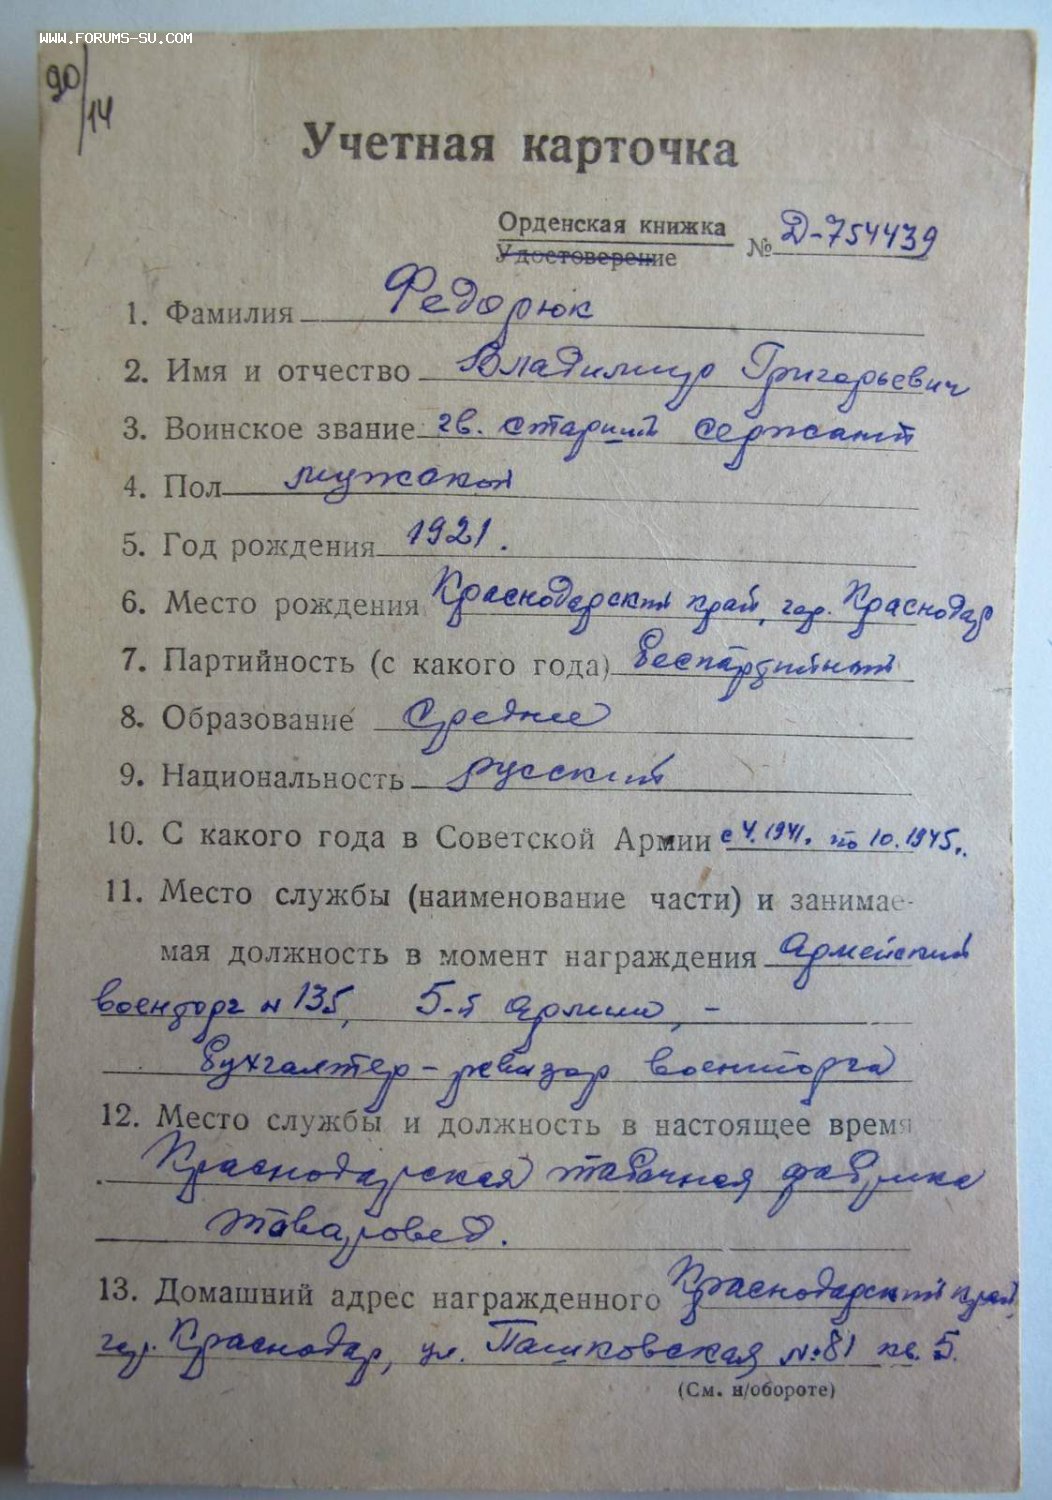 WWW.FORUMS-SU.COM
90/14
Учетная карточка
Орденская книжка
Удостоверение № Д-754439
1. Фамилия Федорюк
2. Имя и отчество Владимир Григорьевич
3. Воинское звание гв. старший сержант
4. Пол мужской
5. Год рождения 1921.
6. Место рождения Краснодарский край, гор. Краснодар
7. Партийность (с какого года) Беспартийный
8. Образование Среднее
9. Национальность русский
10. С какого года в Советской Армии с 4.1941. по 10.1945г.
11. Место службы (наименование части) и занимае-
мая должность в момент награждения Армейский
военторг № 135, 5-й Армии, -
Бухгалтер - ревизор военторга
12. Место службы и должность в настоящее время
Краснодарская табачная фабрика
товаровед.
13. Домашний адрес награжденного Краснодарский край,
гор. Краснодар, ул. Пашковская № 81 кв. 5.
(См. н/обороте)